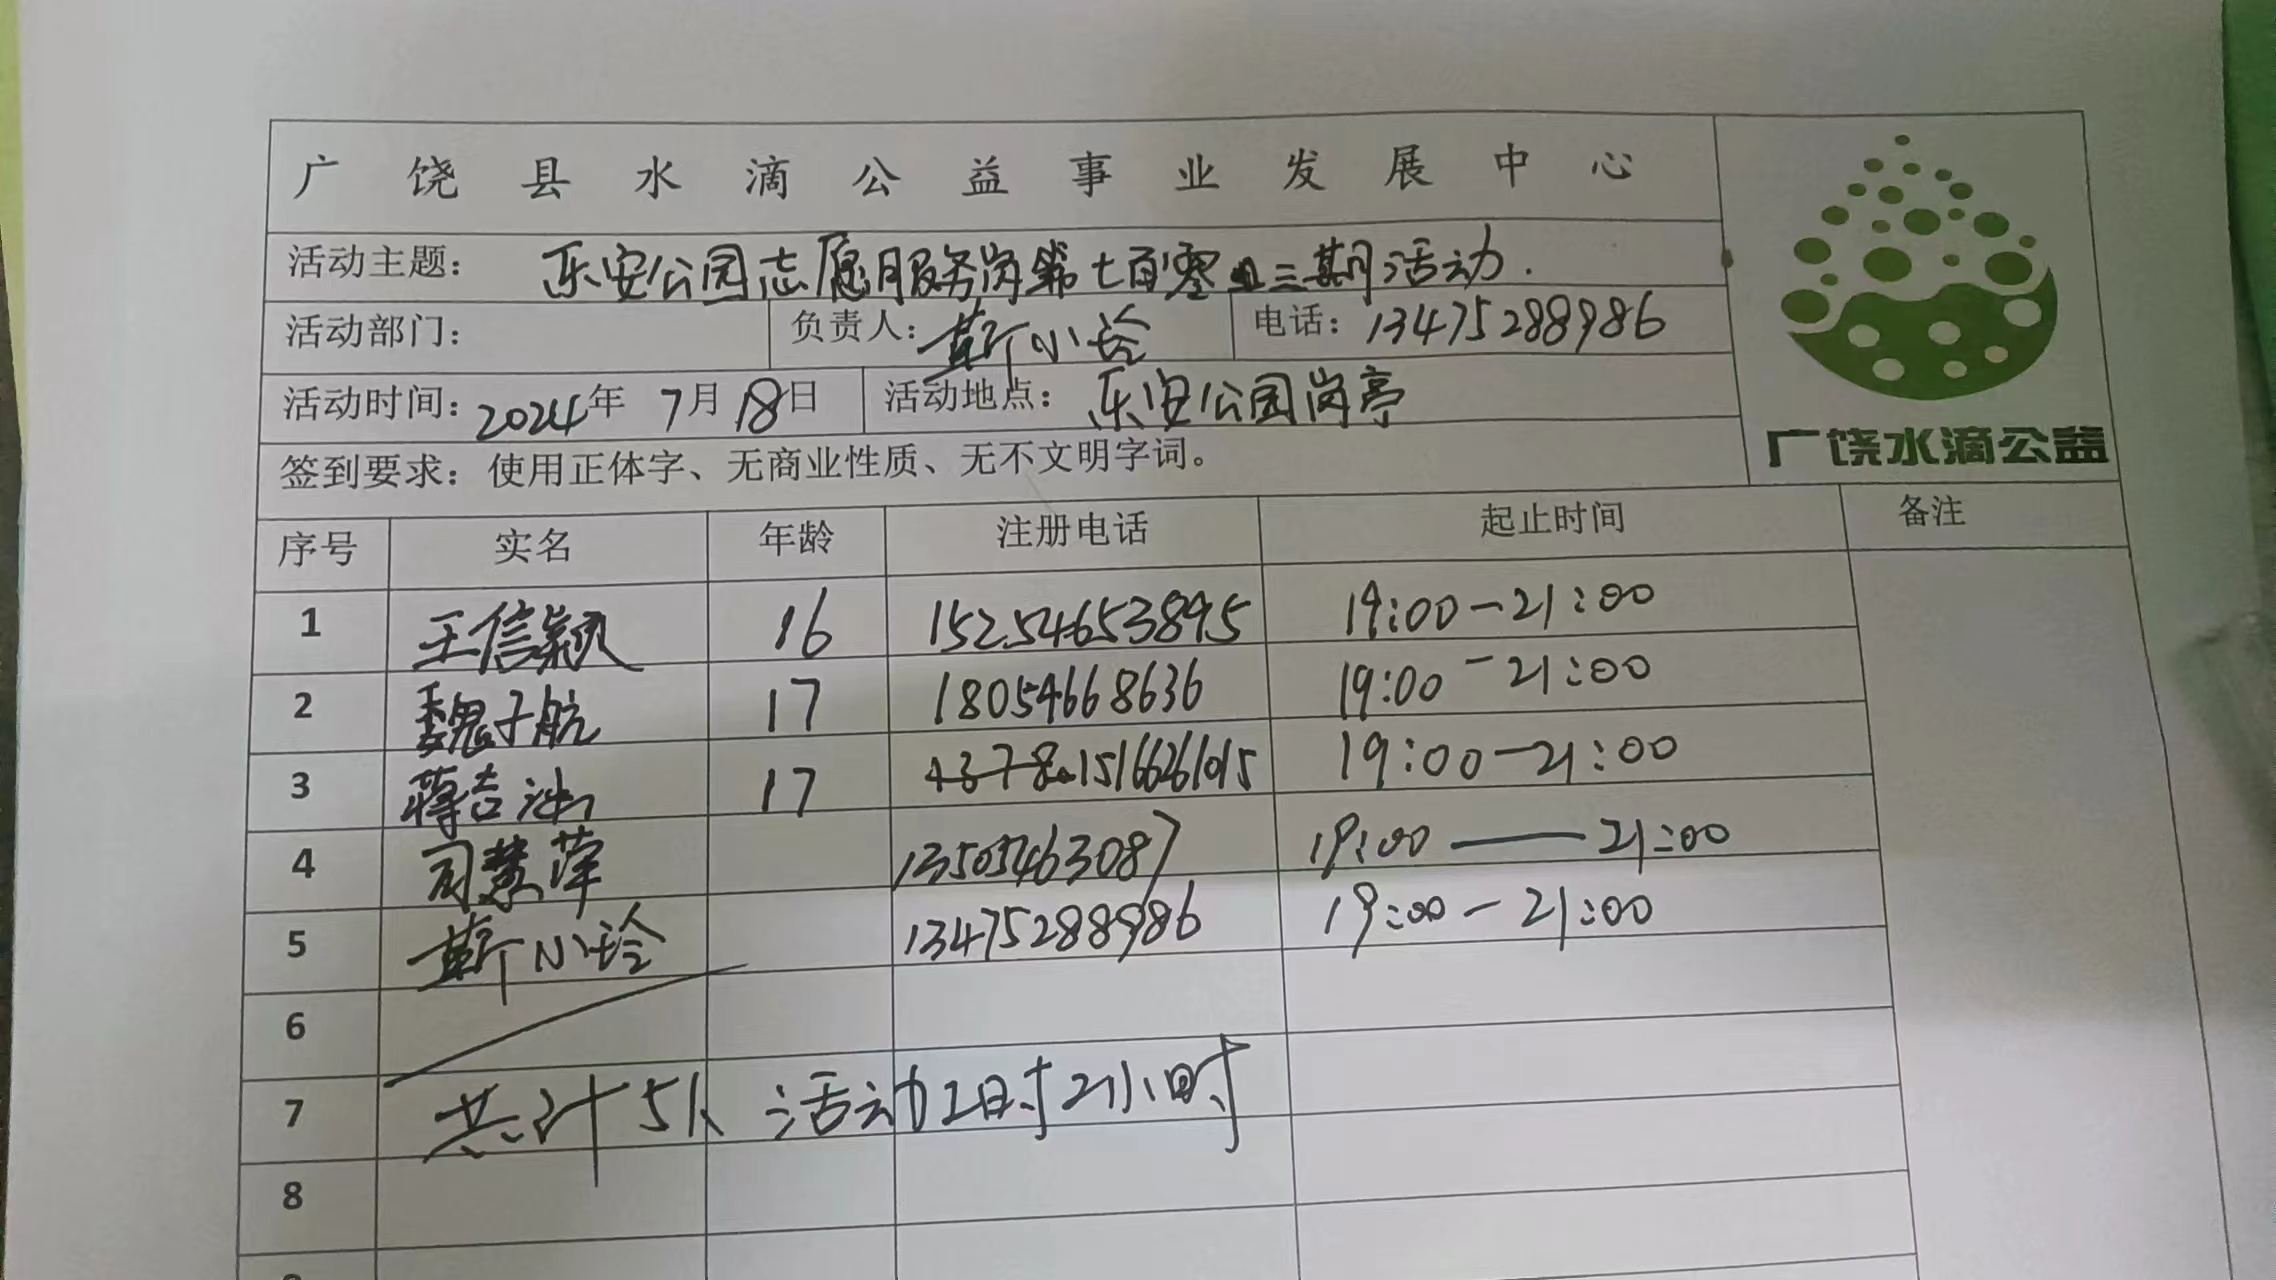 广饶县水滴公益事业发展中心
活动主题： 乐安公园志愿服务岗第七百零三期活动.
活动部门： 负责人：靳小玲 电话：13475288986
活动时间：2024年 7月18日 活动地点：乐安公园岗亭
广饶水滴公益
签到要求：使用正体字、无商业性质、无不文明字词。
序号 实名 年龄 注册电话 起止时间 备注
1 王信颖 16 15254653895 19:00-21:00
2 魏子航 17 18054668636 19:00-21:00
3 蒋吉 17 15166261015 19:00-21:00
4 司慧萍 13505463087 19:00—21:00
5 靳小玲 13475288986 19:00-21:00
6
7 共计5人 活动2时2小时
8